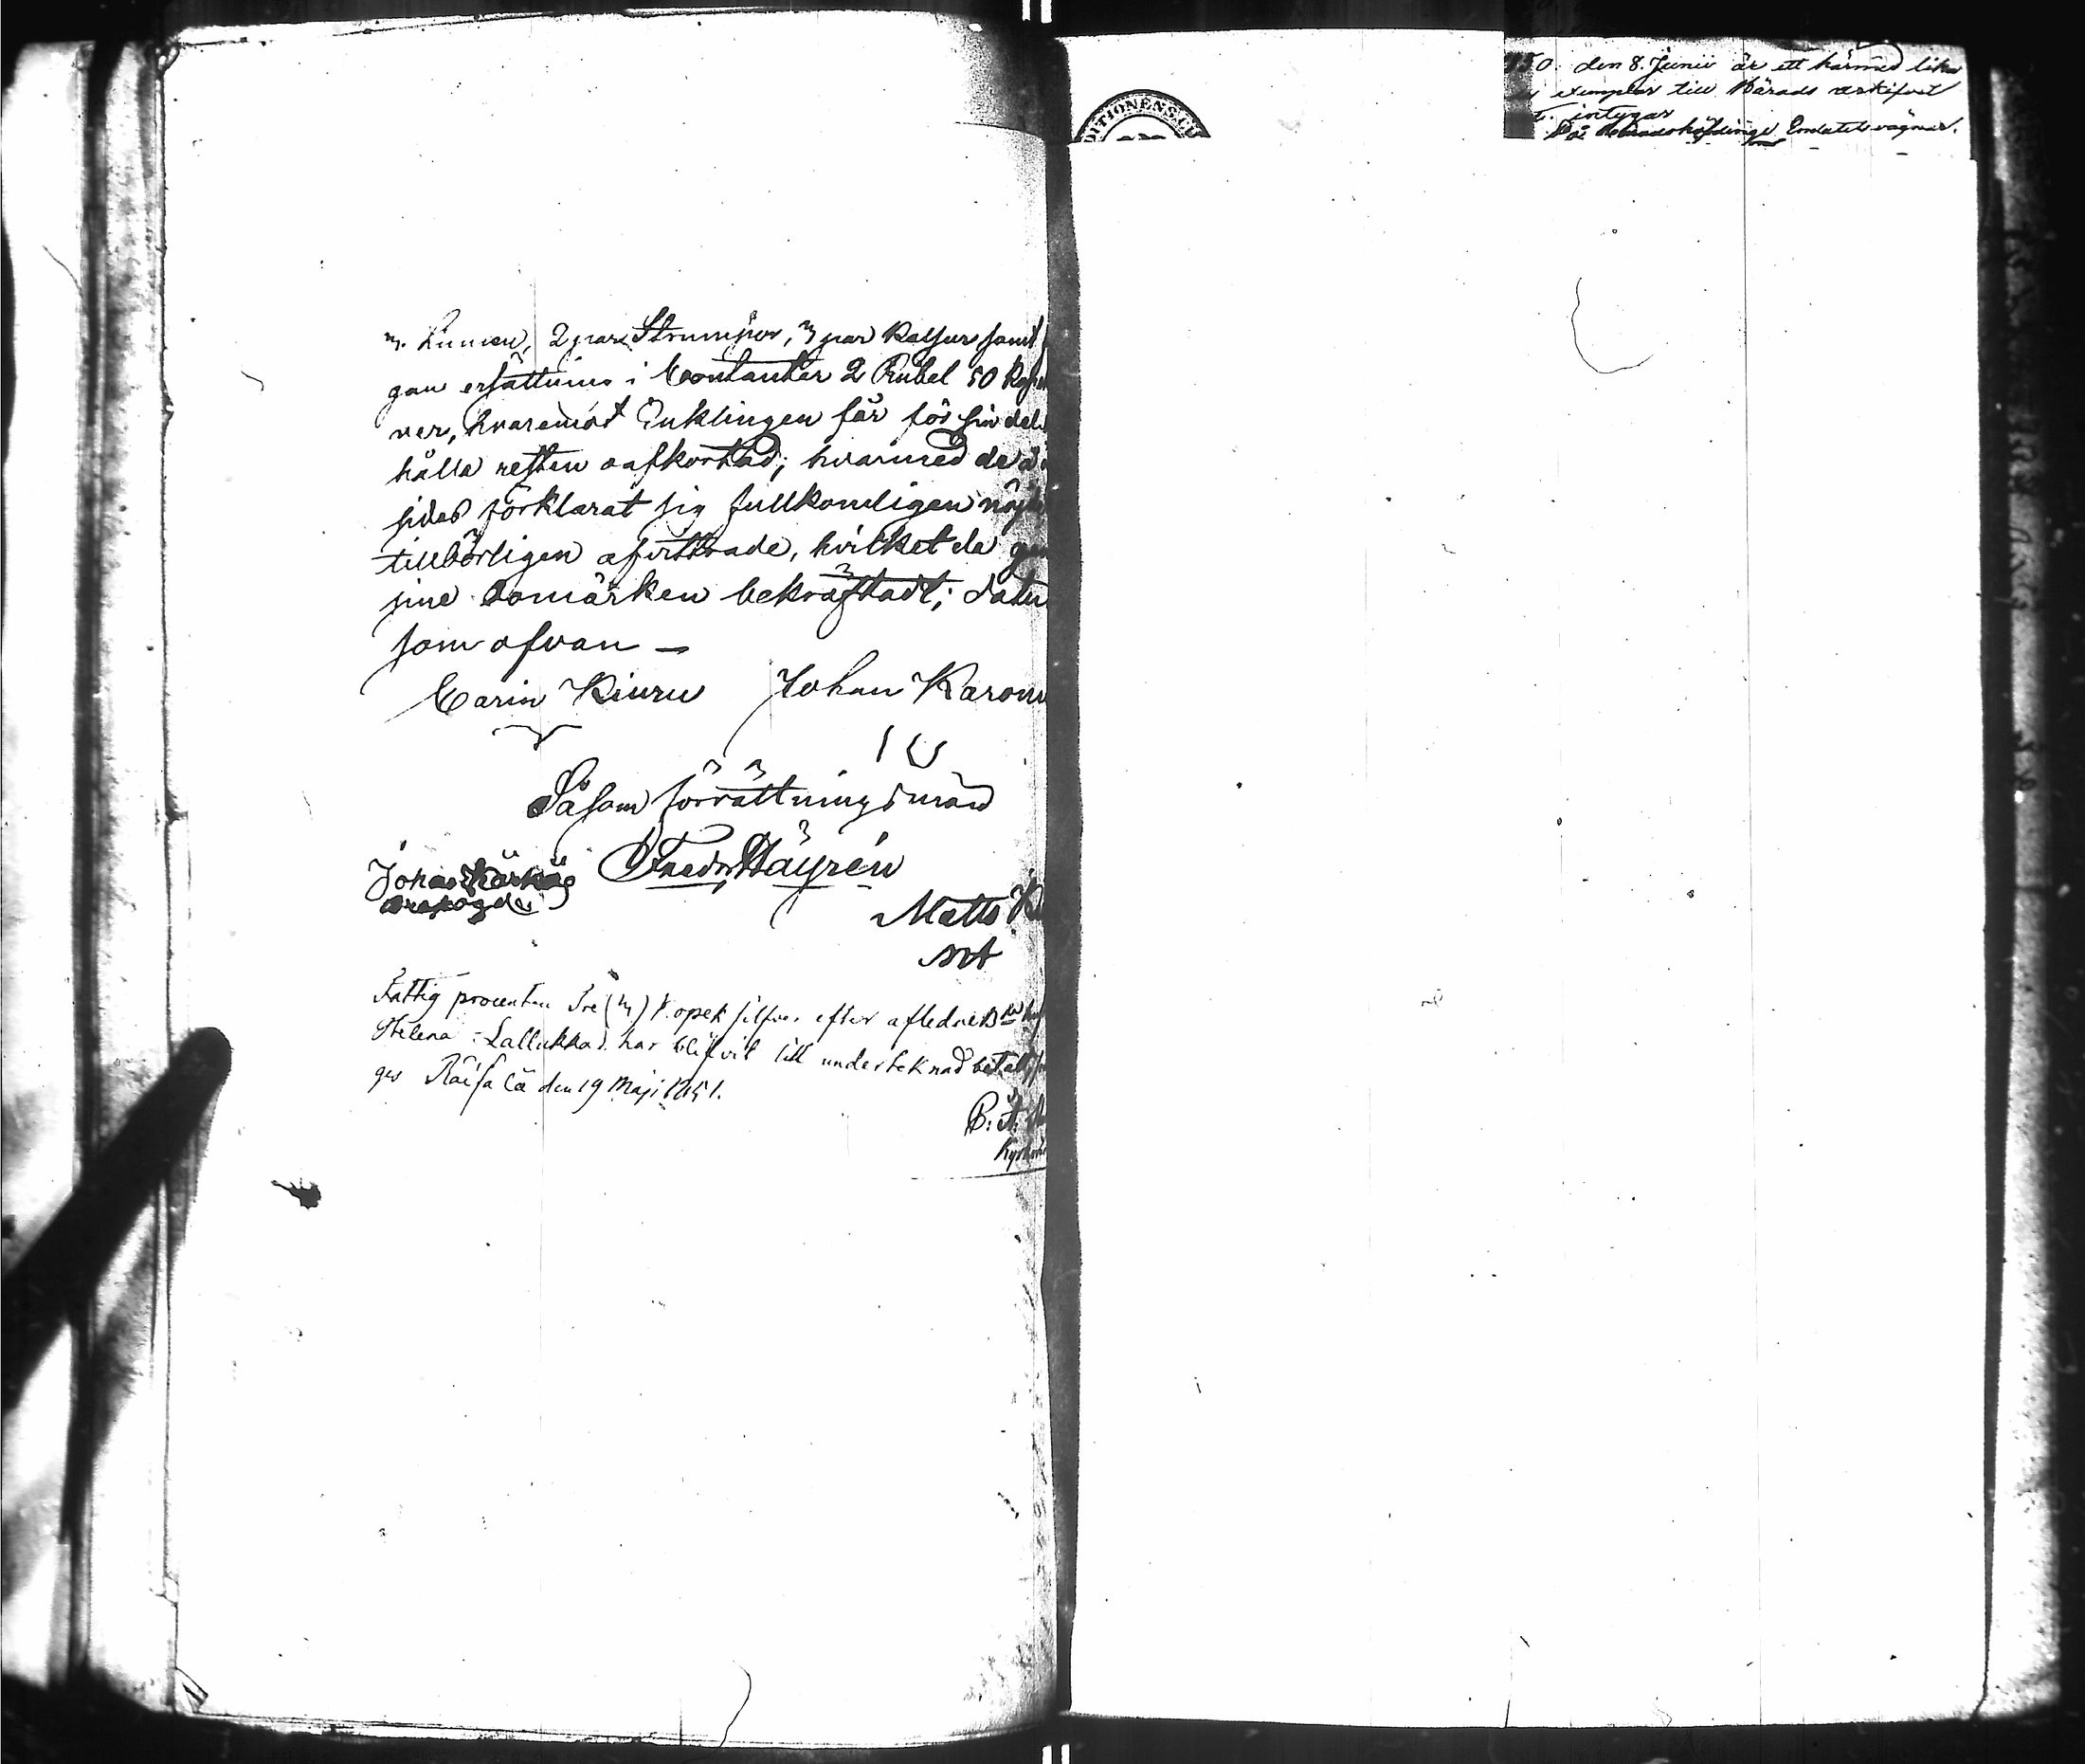 Linnen, 2 par Strumpor, 3 par Kalsur samt
gan ersättning i Contanter 2 Rubel 50 Kop
ver, hvaremot Enklingen får för sin del
hålla resten oafkortad; hvarmed de å
sidor förklarat sig fullkomligen nöjd
tillbörligen afvittrade, hvilket de gen
sine bomärken bekräftadt; datu
som ofvan —
Carin Kiuru Johan Karon
Såsom förrättningsmän
Johan
Fredr Häyrén
Matts
Fattig procenten Tre (3) Kopek silfver efter aflidne
Helena Lallukka har blifvit till undertecknad betalt,
ges Räisälä den 19 Maji 1851.
50. den 8. Junii är ett härmed lika
exemplar till Härads arkifvet
intygar
På Häradshöfdinge Embetets vägnar.
DITIONENS.C